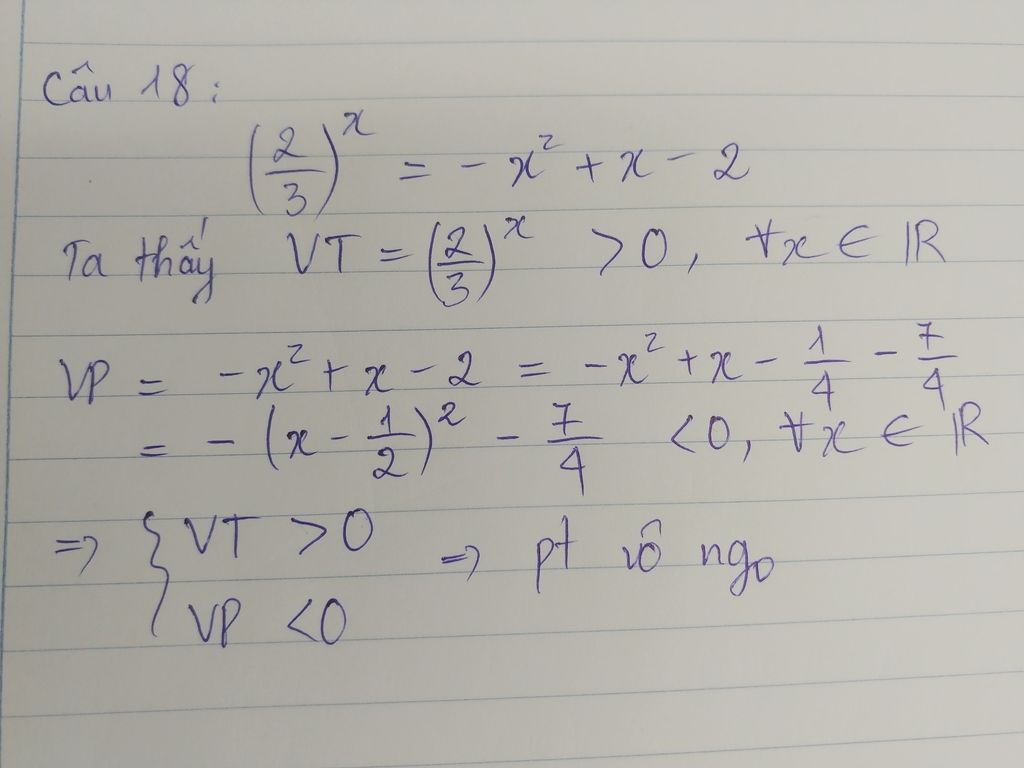 Câu 18:
(2/3)^x = -x² + x - 2
Ta thấy VT = (2/3)^x > 0, ∀x ∈ ℝ
VP = -x² + x - 2 = -x² + x - 1/4 - 7/4
= -(x - 1/2)² - 7/4 < 0, ∀x ∈ ℝ
=> { VT > 0
VP < 0 => pt vô ngo